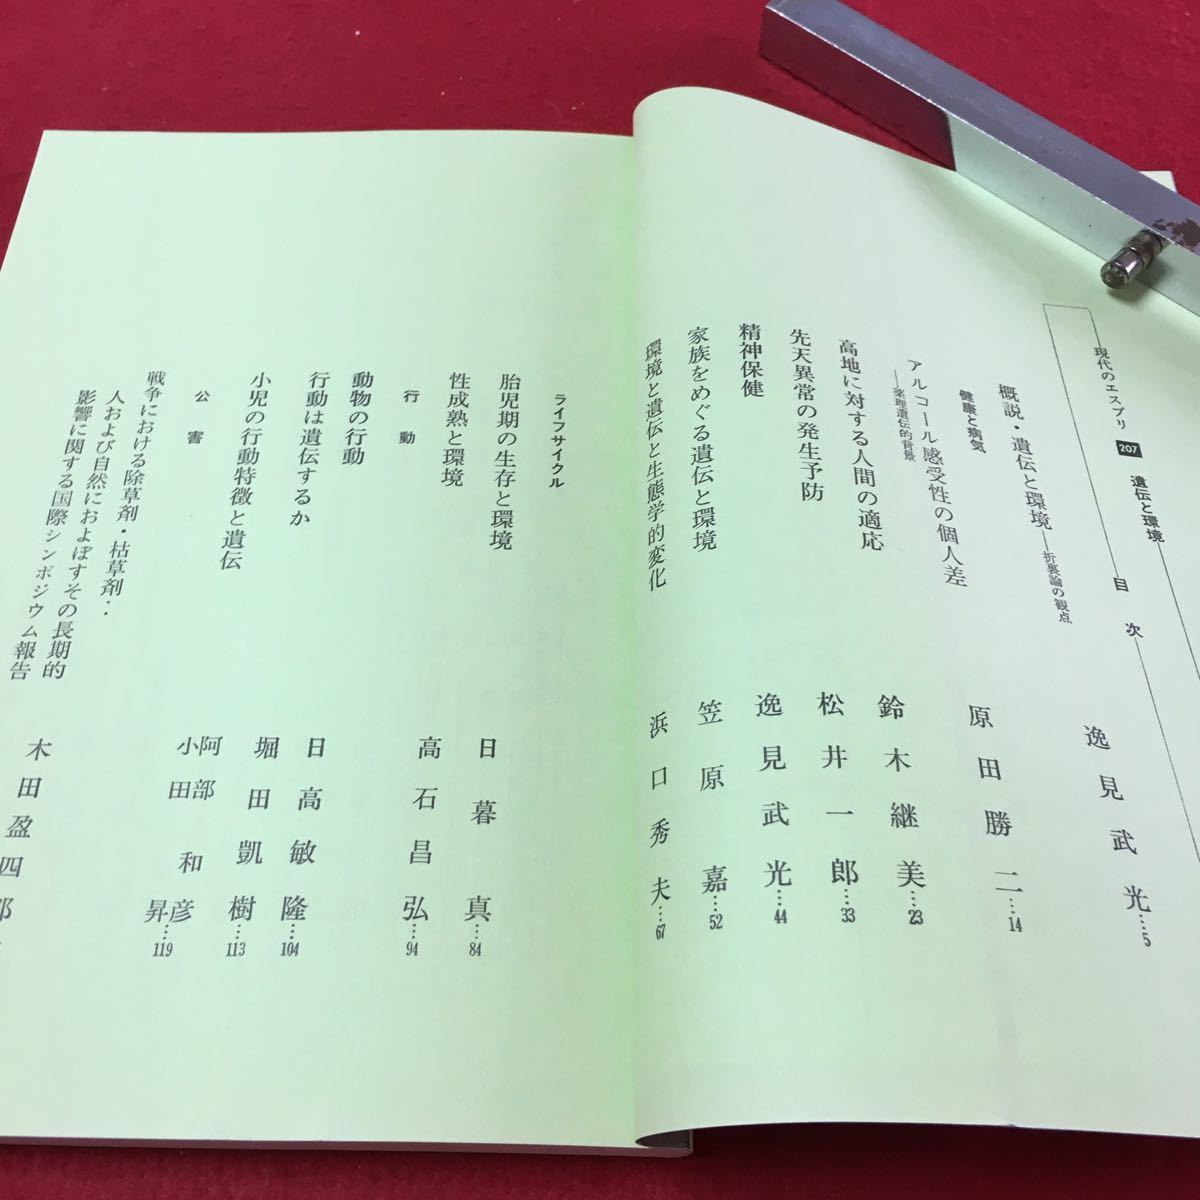 現代のエスプリ 207 遺伝と環境
目次
概説・遺伝と環境―折衷論の観点 逸見武光…5
健康と病気
アルコール感受性の個人差 原田勝二…14
―薬理遺伝的背景
高地に対する人間の適応 鈴木継美…23
先天異常の発生予防 松井一郎…33
精神保健 逸見武光…44
家族をめぐる遺伝と環境 笠原嘉…52
環境と遺伝と生態学的変化 浜口秀夫…67
ライフサイクル
胎児期の生存と環境 日暮真…84
性成熟と環境 高石昌弘…94
行動
動物の行動
行動は遺伝するか 日高敏隆…104
小児の行動特徴と遺伝 堀田凱樹…113
阿部和彦
小田昇…119
公害
戦争における除草剤・枯草剤‥
人および自然におよぼすその長期的
影響に関する国際シンポジウム報告
木田盈四郎